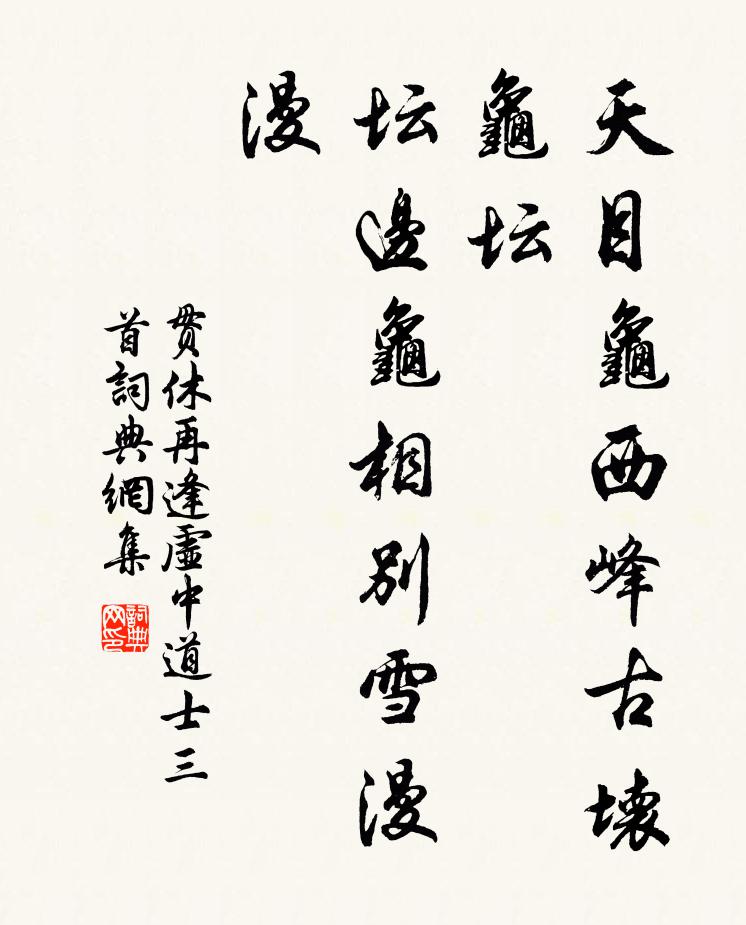 天目龜西峰古壞
龜坛
坛邊龜相別雪漫
漫
貫休再逢虛中道士三
首詞典網集
詞典
网印